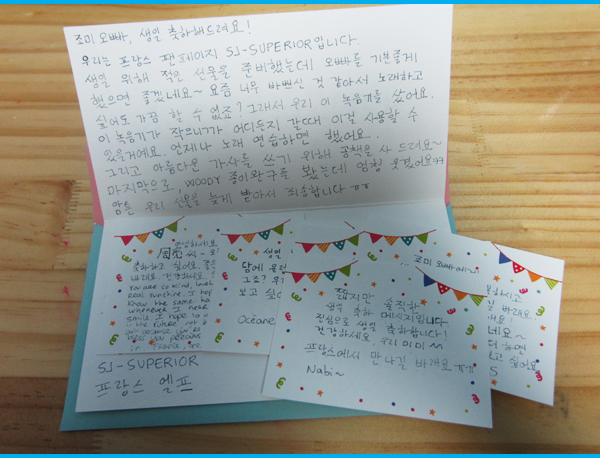 조미 오빠, 생일 축하해드려요!
우리는 프랑스 팬페이지 SJ-SUPERIOR입니다.
생일 위해 작은 선물을 준비했는데 오빠를 기쁘게
했으면 좋겠네요~ 요즘 너무 바쁘신 것 같아서 노래하고
싶어도 가끔 할 수 없죠? 그래서 우리 이 녹음기를 샀어요.
이 녹음기가 작으니가 어디든지 갈때 이걸 사용할 수
있을거예요. 언제나 노래 연습하면 했어요.
그리고 아름다운 가사를 쓰기 위해 공책을 사 드려요~
마지막으로, WOODY 종이왕구를 봤는데 엄청 웃겼어요ㅋㅋ
암튼 우리 선물을 늦게 받아서 죄송합니다 ㅠㅠ
안녕하세요
축하하고 싶어요.
바래요. 건강하세요.
You are so kind,
real sunshine. I hope
know the same ha
whenever I hear
smile. I hope to
in the future
생일
담에 올
그죠? 우
보고 싶
Océane
SJ-SUPERIOR
프랑스 엘프
짧지만 솔직한
생일 축하 메시지입니다.
진심으로 생일 축하합니다!
건강하세요 우리 미미 ^^
프랑스에서 만나길 바래요 ㅠㅠ
Nabi~
조미 오빠에~
바래요
네요~
더 하면
싶어요